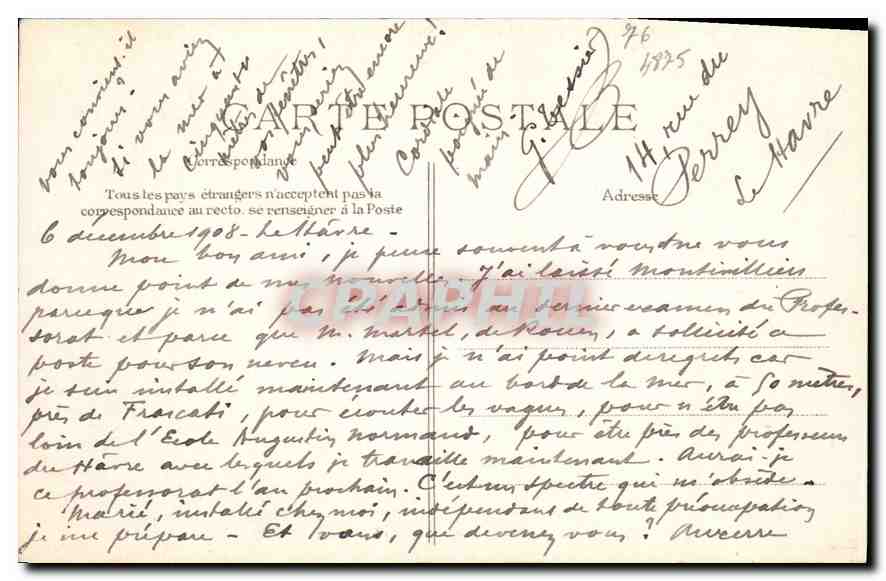 CARTE POSTALE
Correspondance
Tous les pays étrangers n'acceptent pas la
correspondance au recto. se renseigner à la Poste
Adresse
76
4875
6 décembre 1908 - Le Hâvre -
Mon bon ami, je pense souvent à vous et ne vous
donne point de mes nouvelles. J'ai laissé Montivilliers
parce que je n'ai pas été admis au dernier examen du Profes-
sorat et parce que M. Martel, de Rouen, a sollicité ce
poste pour son neveu. Mais je n'ai point de regrets car
je suis installé maintenant au bord de la mer, à 50 mètres,
près de Frascati, pour écouter les vagues, pour n'être pas
loin de l'Ecole Augustin Normand, pour être près des professeurs
du Hâvre avec lesquels je travaille maintenant. Aurai-je
ce professorat l'an prochain. C'est un spectre qui m'obsède -
Marié, installé chez moi, indépendant de toute préoccupation
je me prépare - Et vous, que devenez vous? Auxerre
vous convient-il
toujours?
Si vous aviez
la mer à
cinquante
mètres de
vos fenêtres,
vous seriez
peut être encore
plus heureux!
Cordiale
poignée de
main -
G. Tessier
14, rue du
Perrey
Le Havre
CPAPHIL